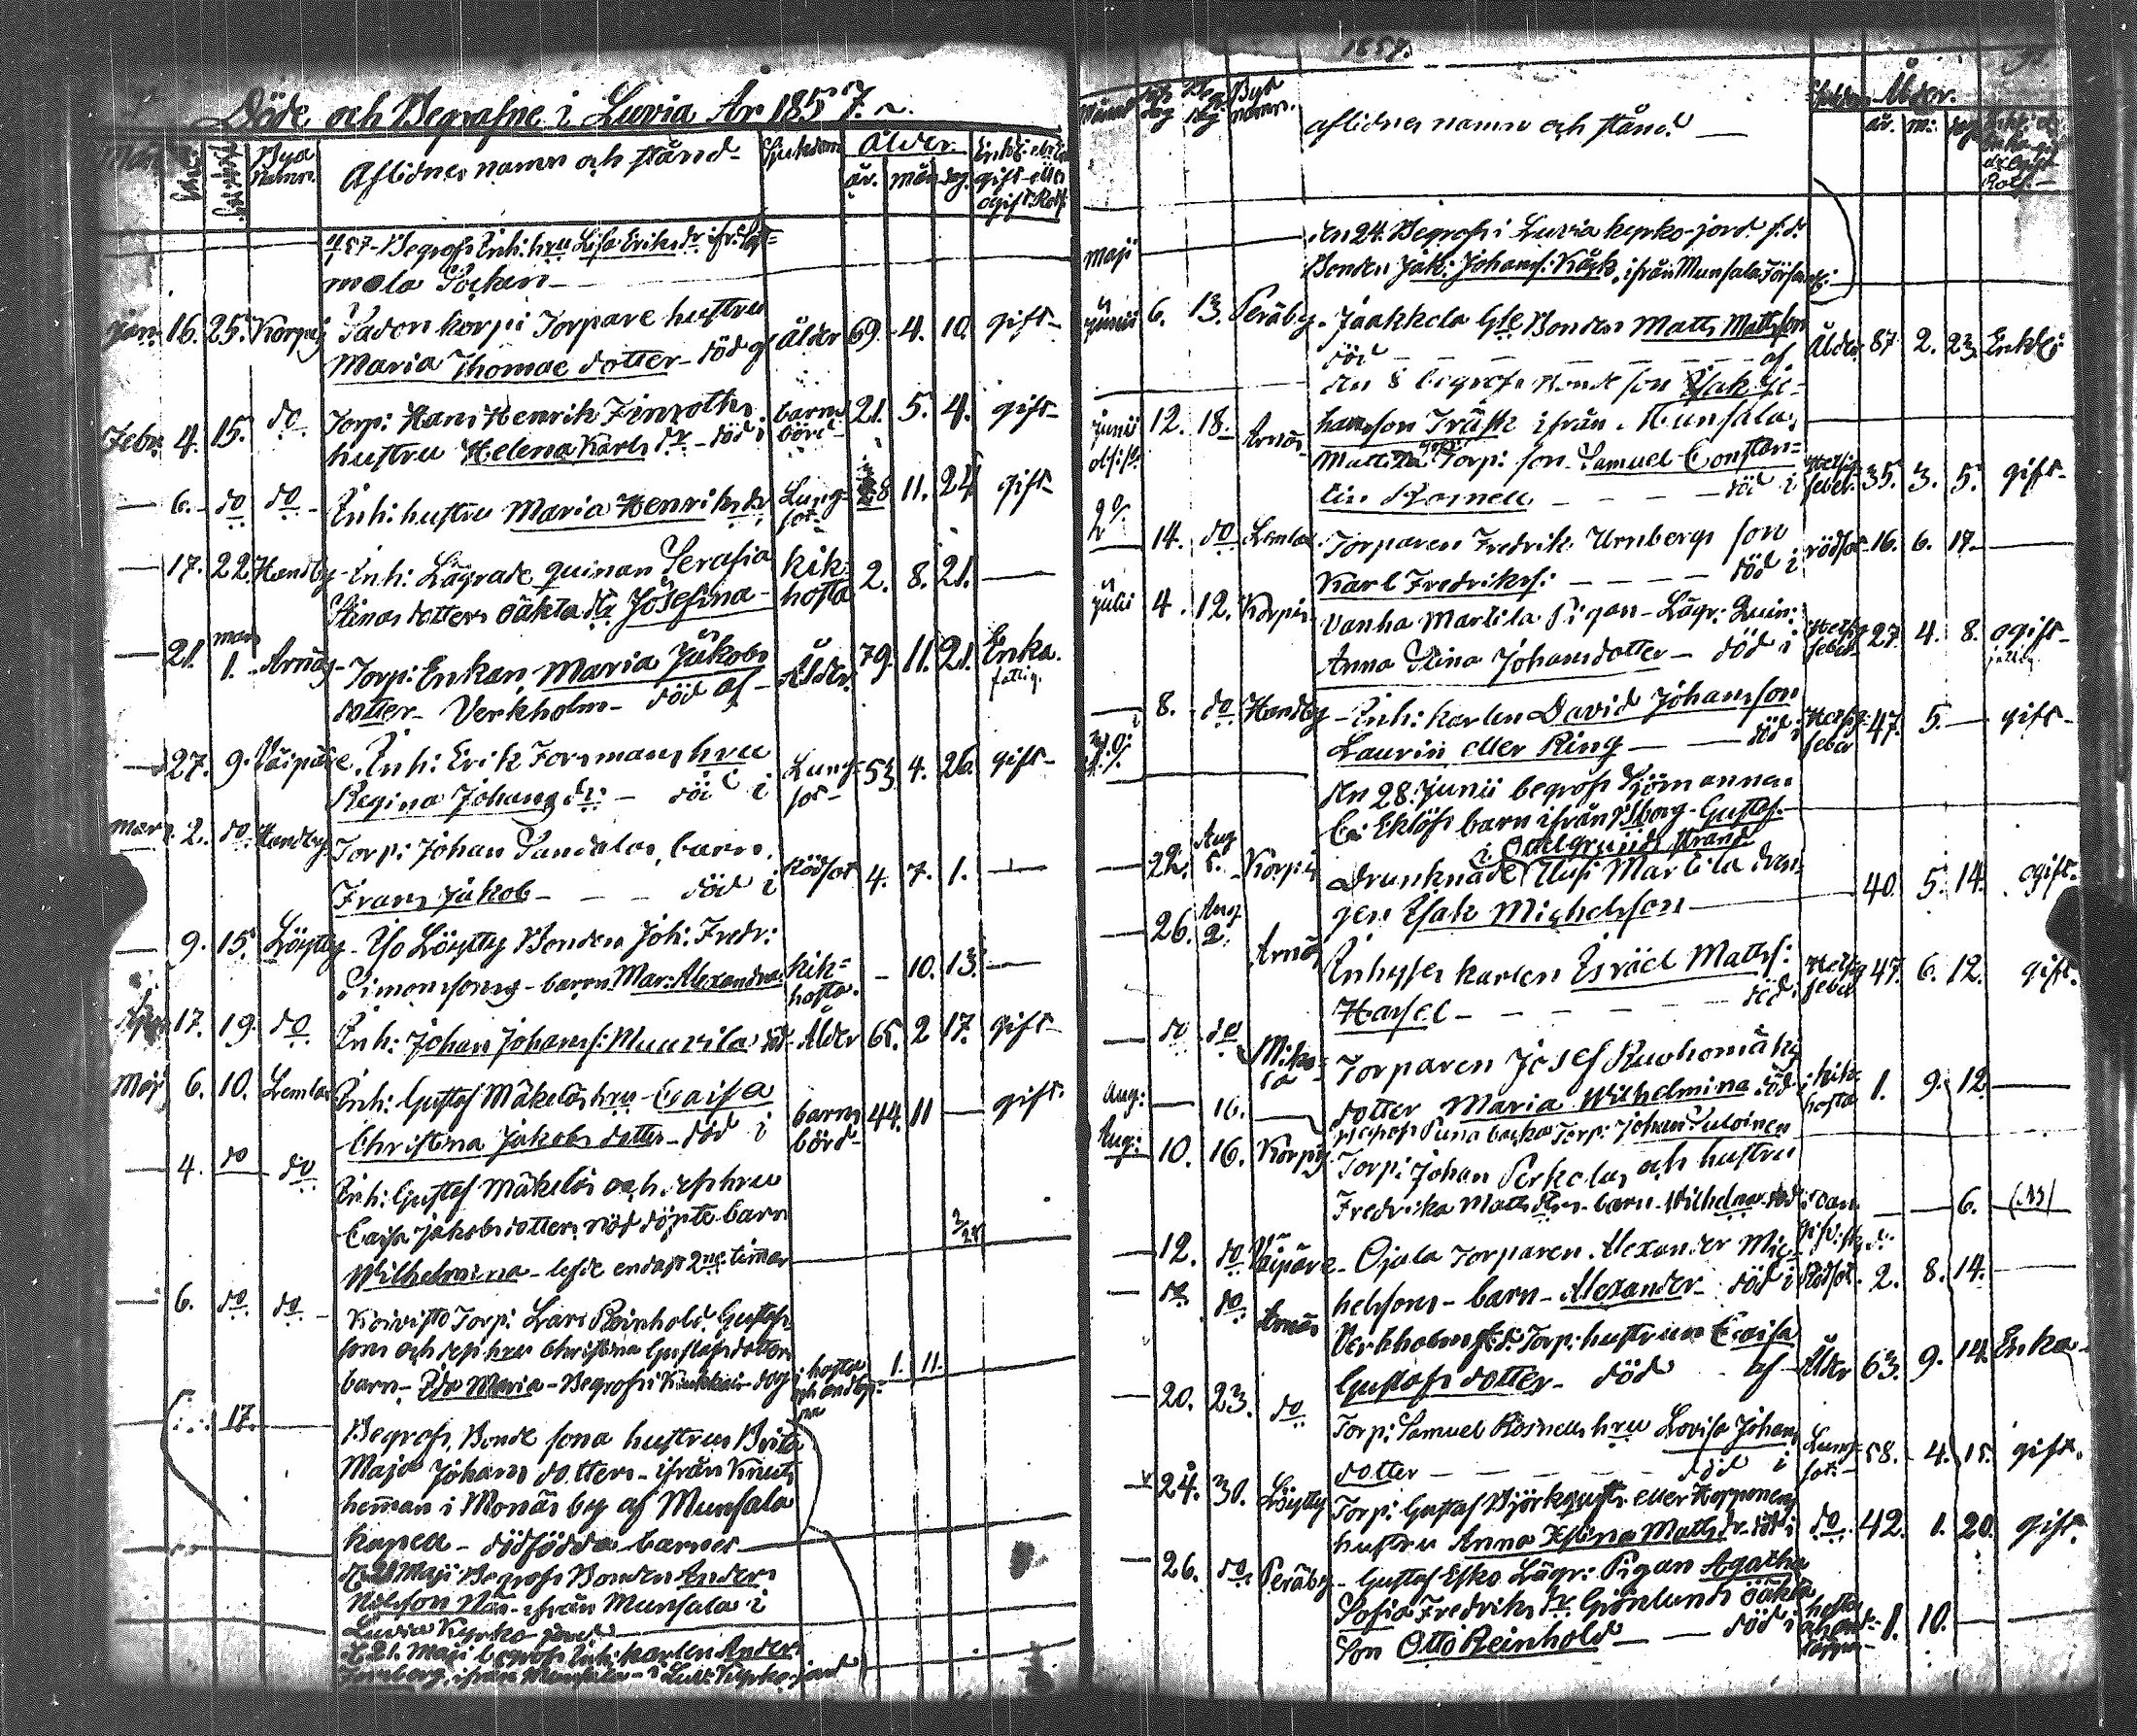 Döde och Begrafne i Luvia År 1857.
Bya namn.
Aflidnes namn och stånd
Sjukdom
Ålder.
år. mån dag.
Enkl: eller
gift eller
ogift:
Begrofs Inh: hru Lisa Eriksdr ifr:
mola Socken
Jan: 16. 25. Korpi Sadonkorpi Torpare hustru
Maria Thomae dotter död af Ålder 69. 4. 10. gift
Febr: 4. 15. do Torp: Hans Henrik Finroths
hustru Helena Karls dr död i barns börd 21. 5. 4. gift
6. do do Inh: hustru Maria Henriksdr Lung- sot 28 11. 24 gift
17. 22. Hanby Inh: Lägrade quinan Serafia
Stinas dotters oäkta dr Josefina kik- hosta 2. 8. 21.
21. mars 1. Arnäs Torp: Enkan, Maria Jakobs
dotter Verkholm död af Ålder 79. 11. 21. Enka. fattig.
27. 9. Väipäre Inh: Erik Forsmans hru
Regina Johans dr död i Lung- sot 53. 4. 26. gift
mars 2. do Hanby Torp: Johan Sandelas, barn
Frans Jakob död i Rödsot 4. 7. 1.
9. 15. Löytty Iso Löytty Bonden Joh: Fredr:
Simonsons barn Mar: Alexandra kik- hosta. 10. 13.
17. 19. do Inh: Johan Johans: Muurila död Ålder 65. 2 17. gift
Maj 6. 10. Lemlax Inh: Gustaf Mäkeläs hru Caisa
Christina Jakobs dotter död i barns börd 44. 11 gift.
4. do do Inh: Gustaf Mäkeläs och dess hru
Caisa Jakobs dotters nöddöpte barn
Wilhelmina lefde endast 2ne timar 2/24
6. do do Koivisto Torp: Lars Reinhold Gustafs-
son och dess hru Christina Gustafsdotters
barn Ida Maria Begrofs i hosta 1. 11.
17. Begrofs, Bonde sona hustrun Brita
Maja Johans dotters ifrån Knuts
heman i Monäs by af Munsala
kapell dödfödda barnes
d. 20 Maji Begrofs Bonden Anders
Nilsson Näs ifrån Munsala i
Luvia Kyrko jord
d. 21. Maji begrofs Inh: karlen Anders
ifrån Munsala i Luvi: Kyrko jord
1857.
Månad
Bya namn.
Aflidnes namn och stånd
Ålder.
år. m: dag
Maji den 24. Begrofs i Luvia kyrko-jord f.d.
Bonden Jak: Johans: Käck, ifrån Munsala
Junii 6. 13. Peräby Jaakkola Gle Bonden Matts Mattsson
död af Ålder 87 2. 23. Enkl:
den 8 begrofs Bonde son Isak Jo-
hansson Träsk ifrån Munsala,
Junii 12. 18. Arnäs Torp: son Samuel Constan-
tin Rosnell död i Hetsig feber. 35. 3. 5. gift
14. do Lemlax Torparen Fredrik Urnbergs son
Karl Fredriks: död i rödsot 16. 6. 17.
Julii 4. 12. Korpi Vanha Martila Pigan Lägr: Quin:
Anna Stina Johansdotter död i Hets: feber 27. 4. 8. ogift
8. do Hanby Inh: karlen David Johansson
Laurin eller Ring död i Hetsig- feber 47. 5. gift
den 28. Junii begrofs Sjömannen
C: Eklöfs barn ifrån Gustaf.
22. Aug 5. Korpi drunknade Uusi Martila drän-
gen Isak Michelsson 40. 5. 14. ogift.
26. Aug 2. Arnäs Inhyses karlen Israel Matts:
Harsel död i Hetsig feber 47. 6. 12. gift.
do do Torparen Josef Ruohomäkis
dotter Maria Wilhelmina död i kik- hosta 1. 9. 12.
Aug: 16. Begrofs Torp: Johan
Aug: 10. 16. Korpi Torp: Johan Perkolas och hustru
Fredrika Matts drs barn Wilhelmar död i 6.
12. do Väipäre Ojala Torparen Alexander Mic-
helsons barn Alexander död i Rödsot. 2. 8. 14.
do do Arnäs Verkholms f.d. Torp: hustrun Caisa
Gustafs dotter död af Ålder 63. 9. 14. Enka
20. 23. do Torp: Samuel Rosnells hru Lovisa Johans
dotter död i Lung- sot: 58. 4. 15. gift.
24. 30. Löytty Torp: Gustaf Björkqvists eller Horponens
hustru Anna Stina Matts dr död i do 42. 1. 20. gift
26. do Peräby Gustaf Esko Lägr: Pigan Agatha
Sofia Fredriks dr Grönlunds oäkta
son Otto Reinhold död i hosta 1. 10.